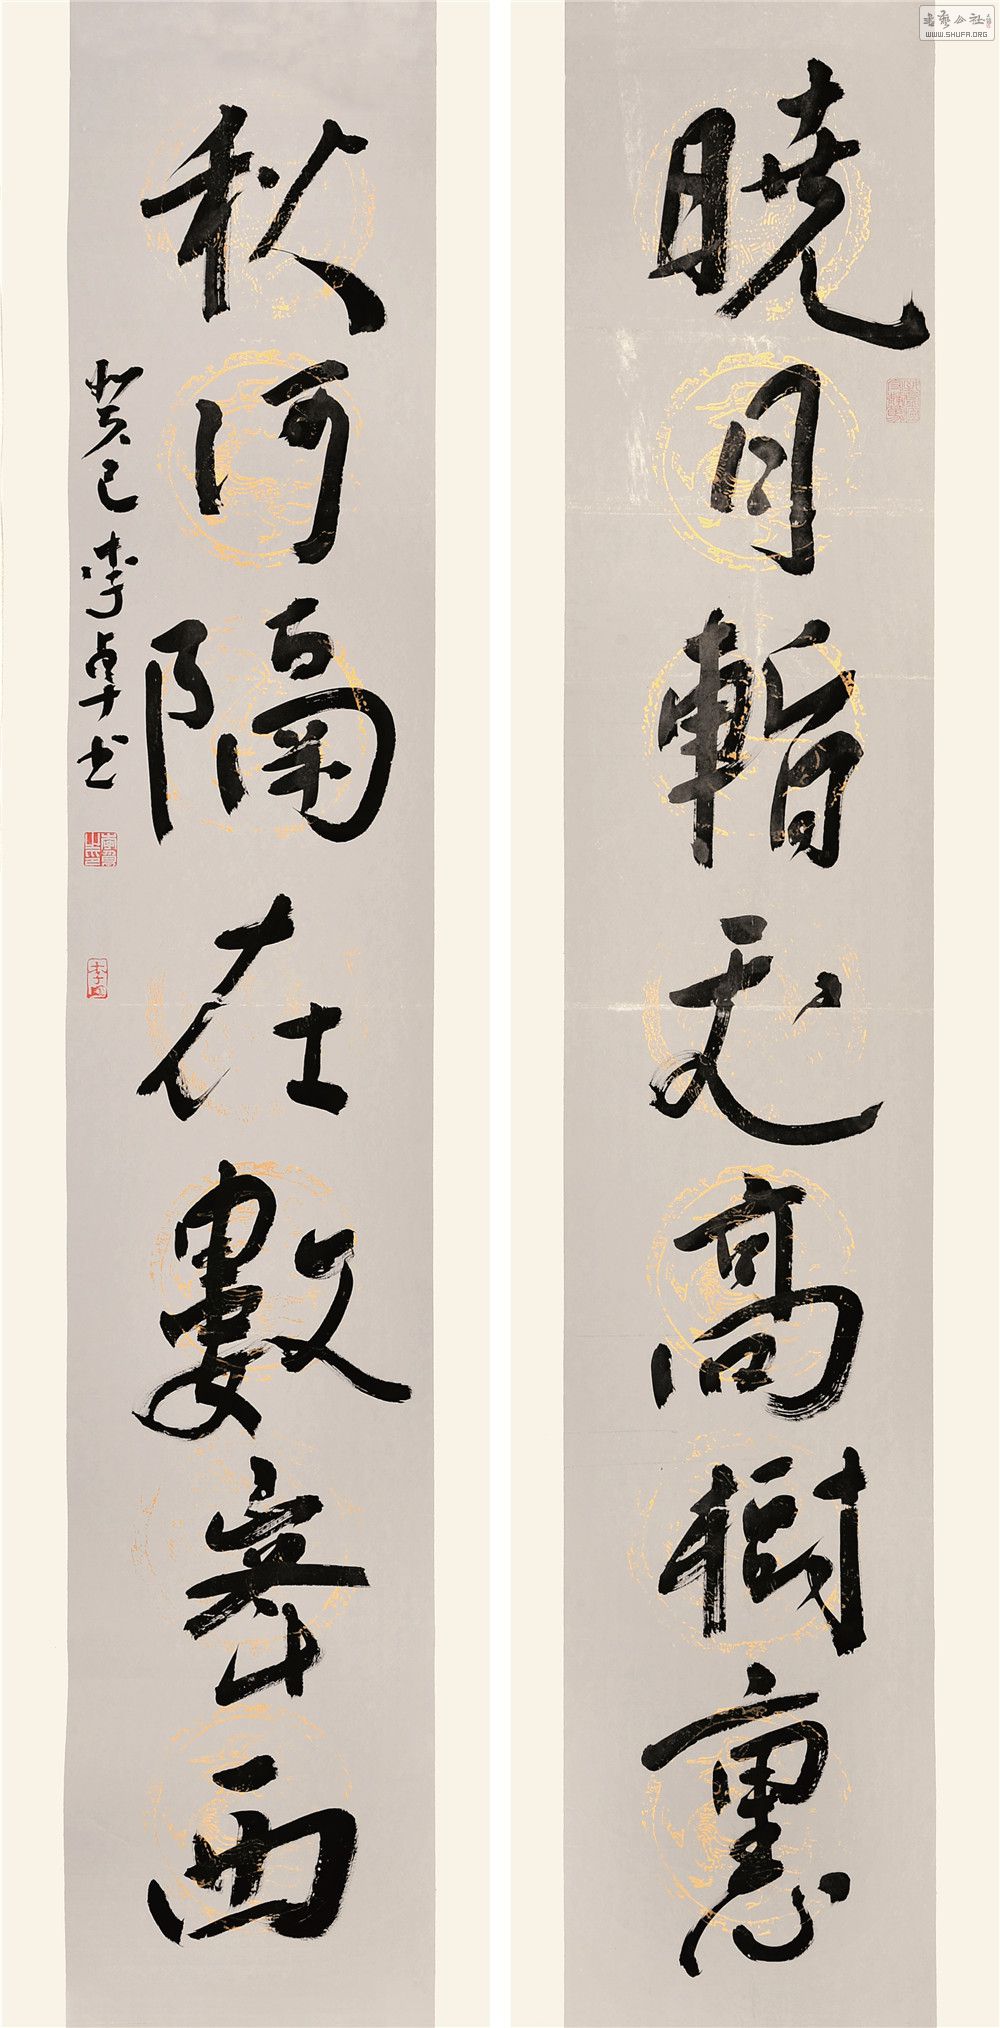 曉月暫飛高樹裏
秋河隔在數峯西
癸巳李卓书
書藝公社
WWW.SHUFA.ORG